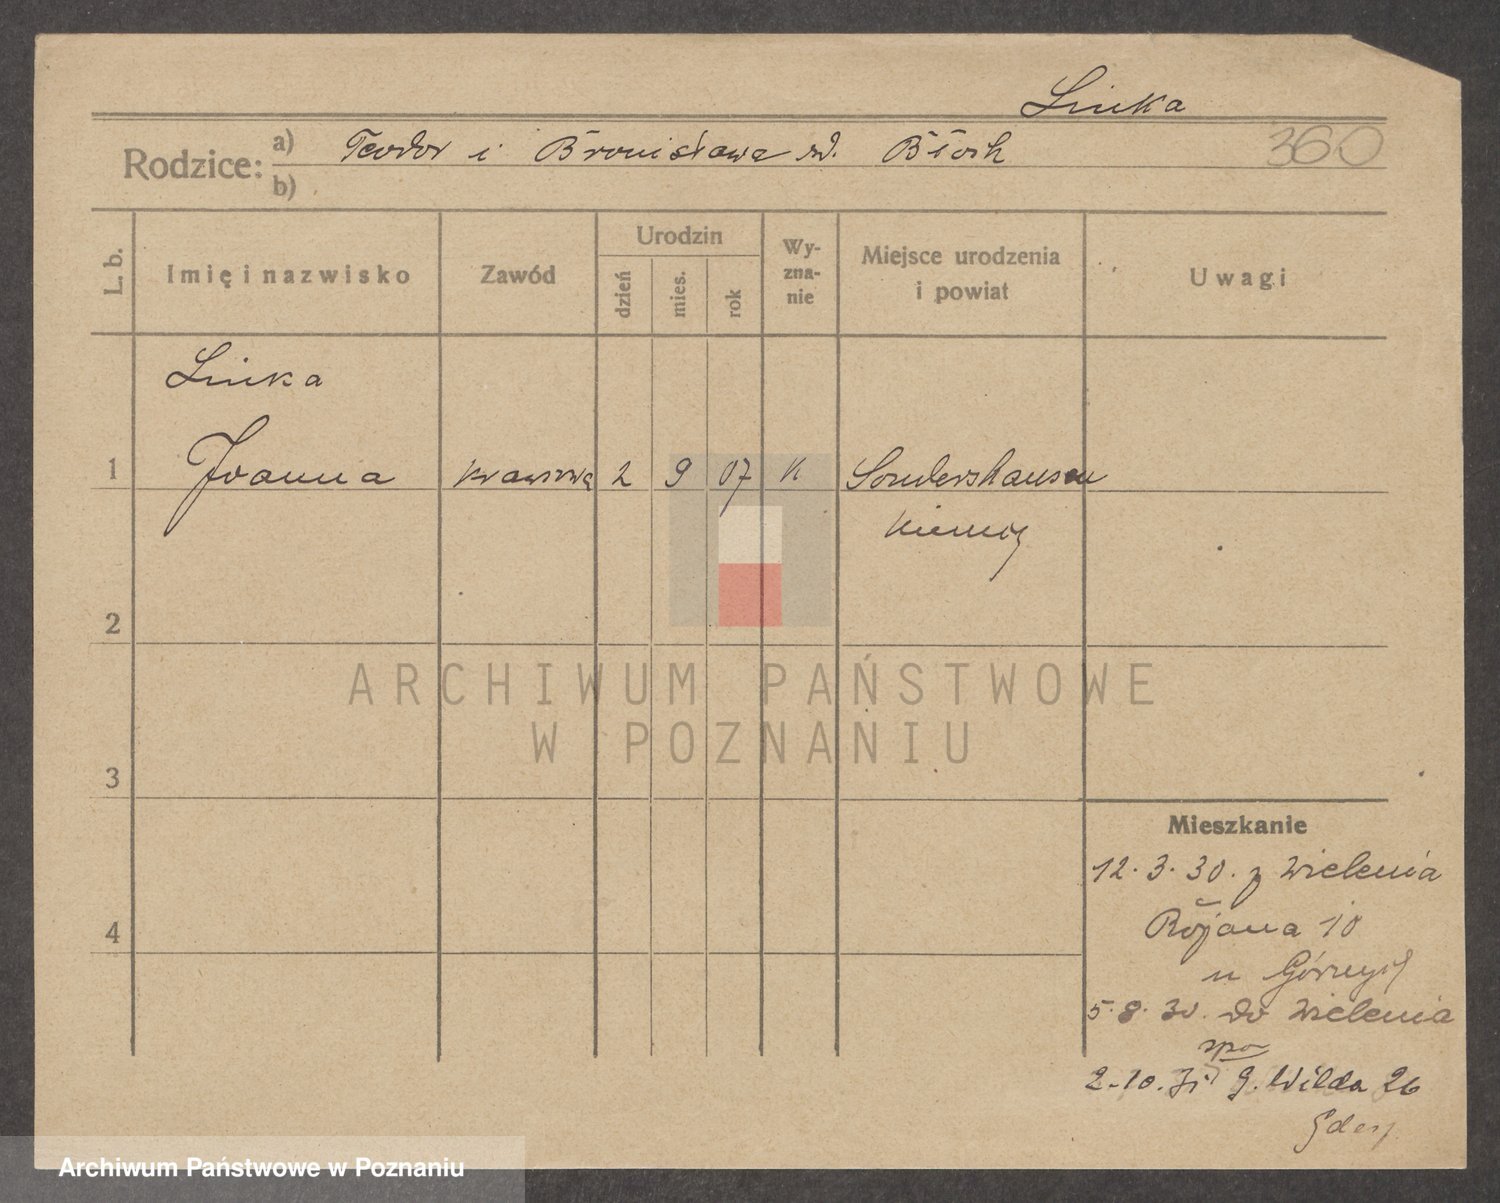 Linka
Rodzice: a) Teodor i Bronisława rd. Błoch
360
b)
L. b.
Imię i nazwisko
Zawód
Urodzin
dzień
mies.
rok
Wy-
zna-
nie
Miejsce urodzenia
i powiat
Uwagi
Linka
1 Joanna krawcowa 2 9 07 K Sondershausen
Niemcy
2
ARCHIWUM PAŃSTWOWE
W POZNANIU
3
Mieszkanie
12. 3. 30. z Wielenia
4
Różana 10
u
5. 8. 30. do Wielenia
2-10. G. Wilda 26
Archiwum Państwowe w Poznaniu